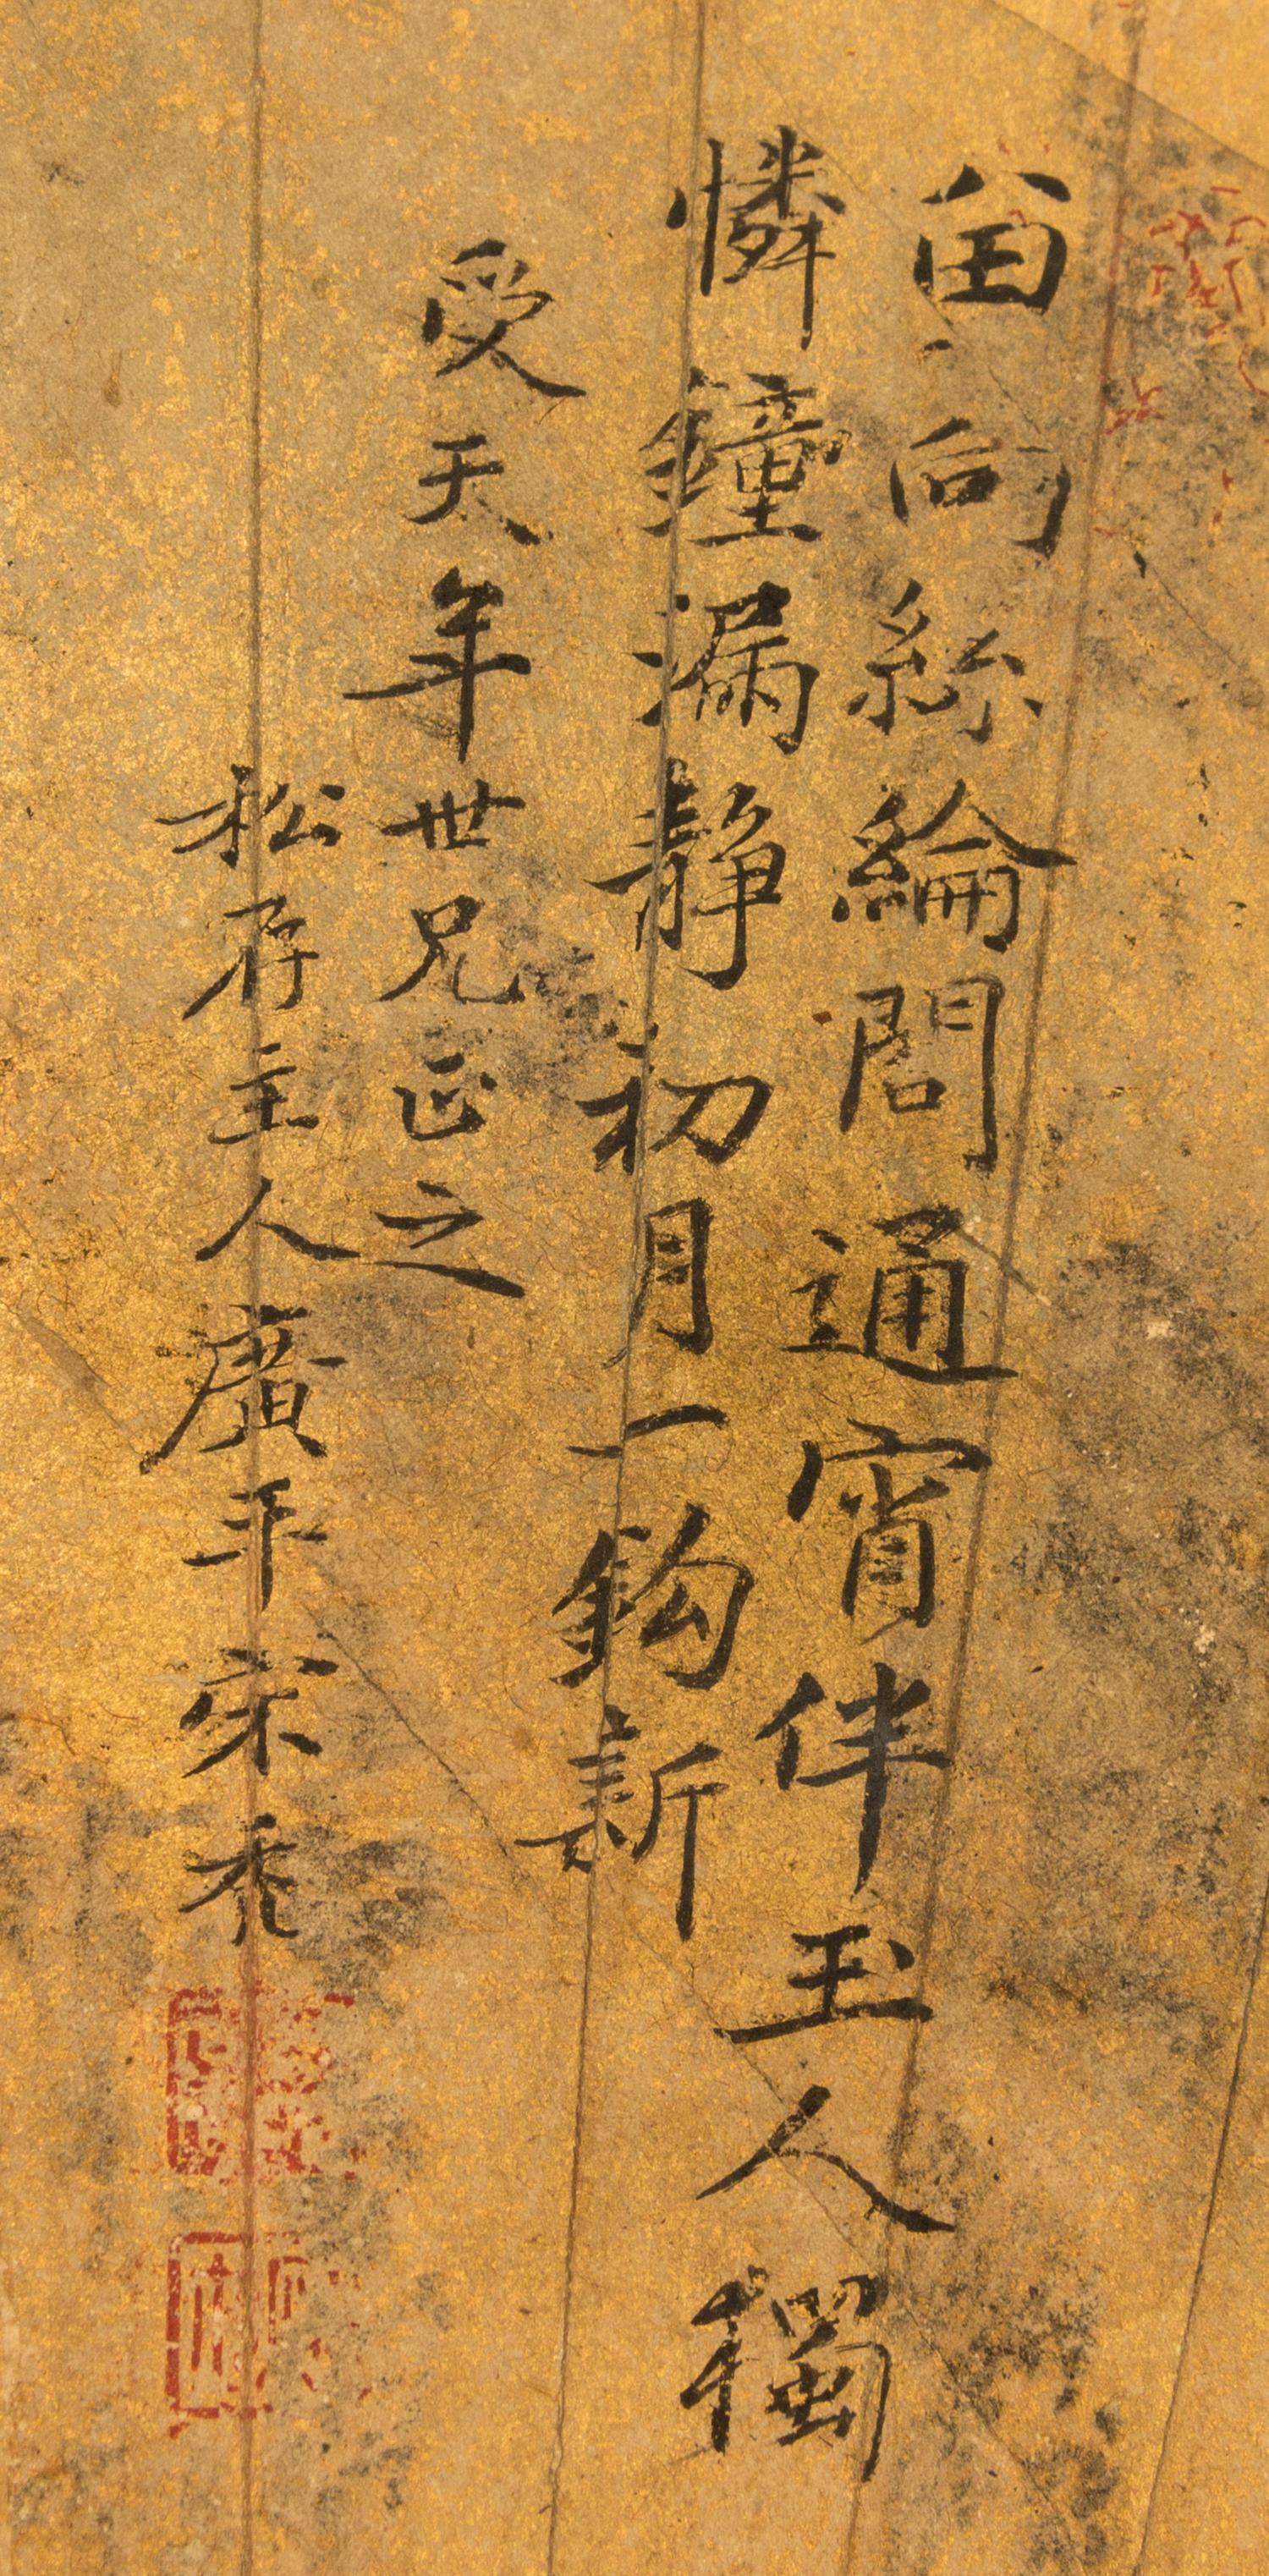 留向絲綸閣通宵伴玉人獨
憐鐘漏靜初月一鈎新
受天年世兄正之
松存主人廣平宋